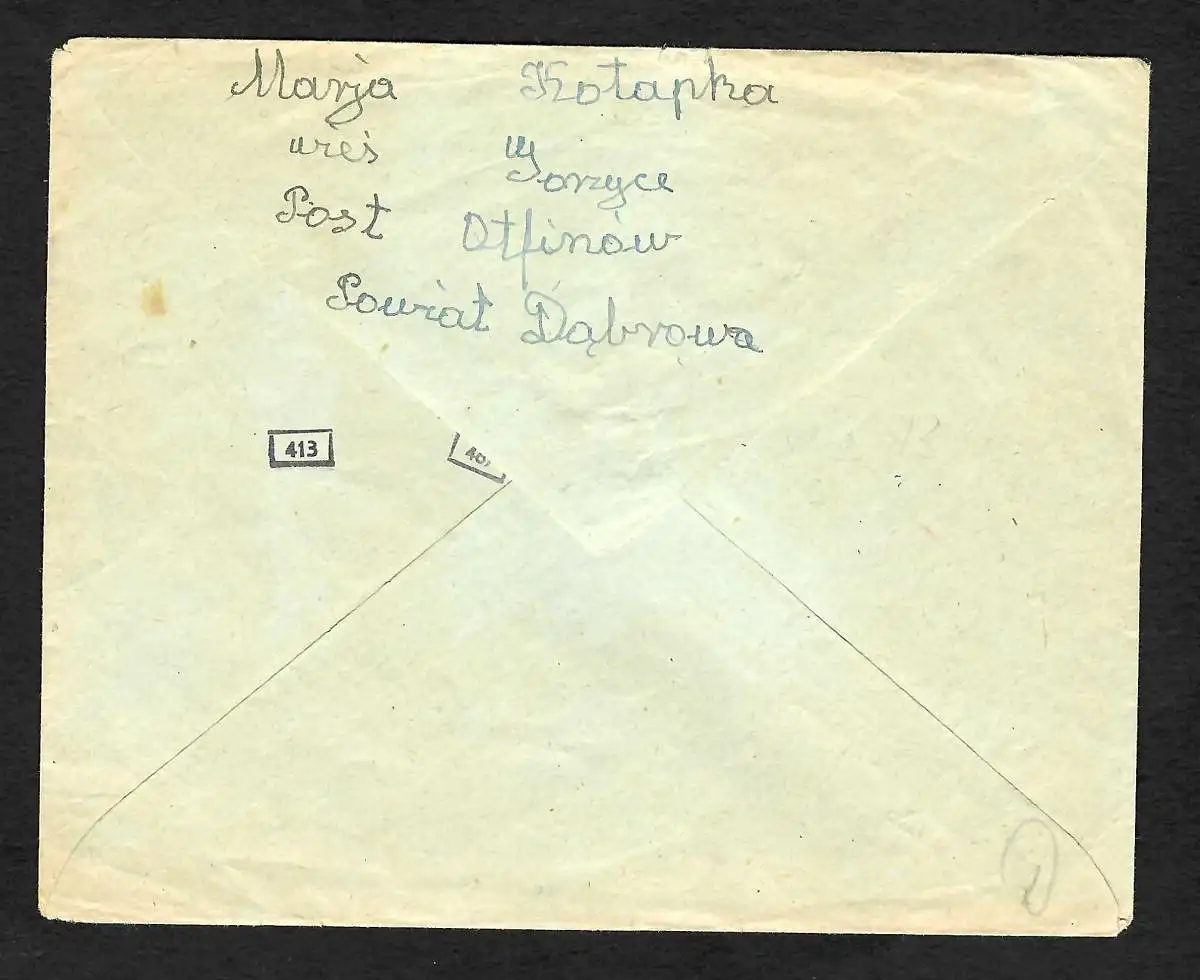 Marja Kotapka
wieś Gorzyce
Post Otfinów
Powiat Dąbrowa
413
40